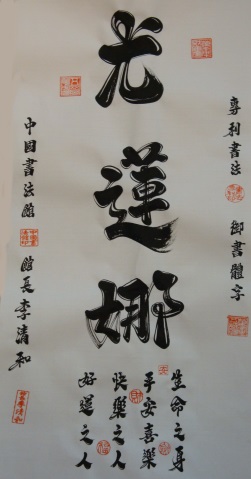 專利書法 御書體字
尤蓮娜
生命之身
平安喜樂
快樂之人
好運之人
中国書法館 館長李清和